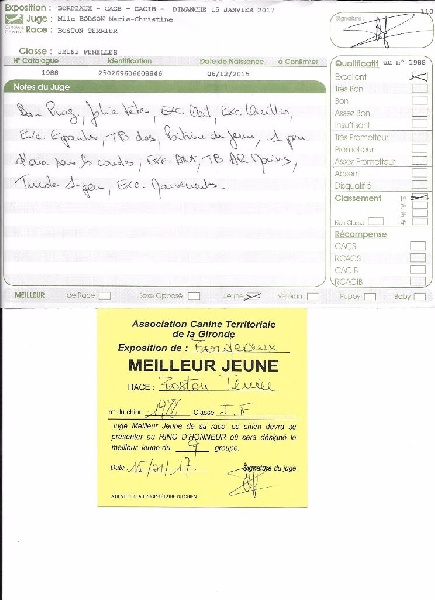 Exposition : BORDEAUX - CACS - CACIB - DIMANCHE 15 JANVIER 2017
Juge : Mlle DODSON Marie-Christine
Race : BOSTON TERRIER
Signature :
Classe : JEUNE FEMELLES
N° Catalogue Identification Date de Naissance à Confirmer
1988 250269606608846 06/12/2015
Notes du Juge
Exc. Exc. Oreilles,
Exc. TB dos, Poitrine de jeune, 1 peu
les coudes, Exc. TB AR
Exc. Mouvements.
Qualificatif au n° 1988
Excellent
Très Bon
Bon
Assez Bon
Insuffisant
Très Prometteur
Prometteur
Assez Prometteur
Absent
Disqualifié
Classement 1er
2e
3e
Non Classé 4e
Récompense
CACS
RCACS
CACIB
RCACIB
MEILLEUR de Race Sexe Opposé Jeune Vétéran Puppy Baby
Association Canine Territoriale
de la Gironde
Exposition de : Bordeaux
MEILLEUR JEUNE
RACE : Boston Terrier
n° du chien 1988 Classe J.F
Jugé Meilleur Jeune de sa race ce chien devra se
présenter au RING D'HONNEUR où sera désigné le
meilleur jeune du 9 groupe.
Date 15/01/17. Signature du juge